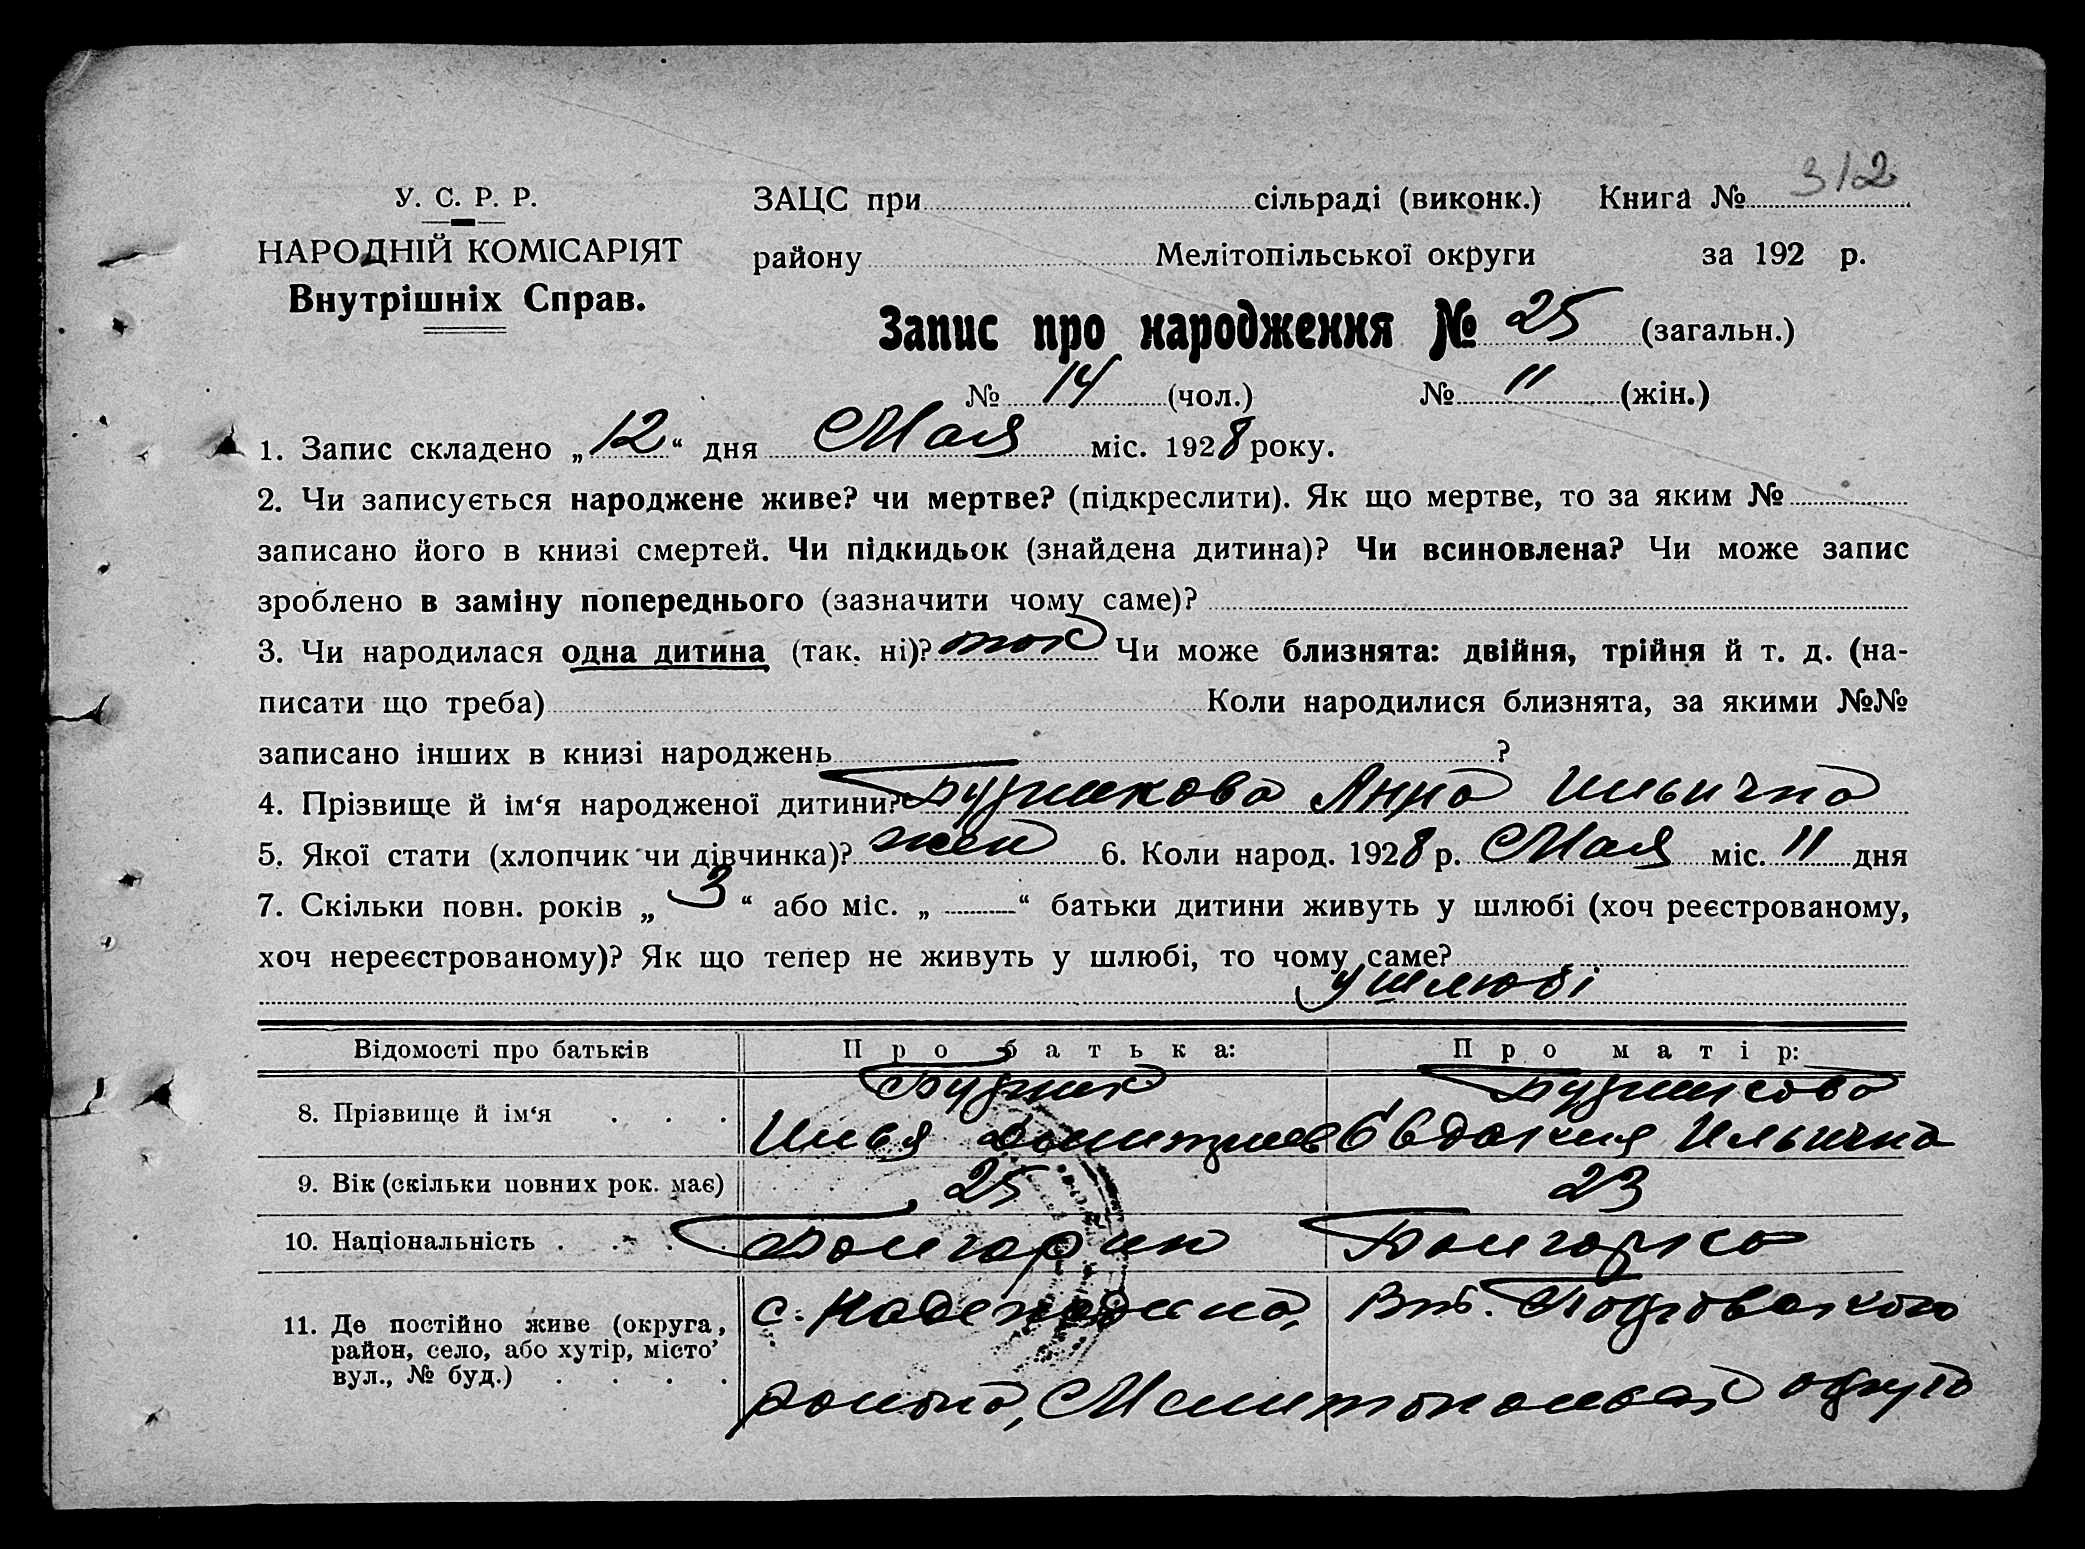 312
У. С. Р. Р.
НАРОДНІЙ КОМІСАРІЯТ
Внутрішніх Справ.
ЗАЦС при сільраді (виконк.) Книга №
району Мелітопільської округи за 192 р.
Запис про народження № 25 (загальн.)
№ 14 (чол.) № 11 (жін.)
1. Запис складено „12“ дня Мая міс. 1928 року.
2. Чи записується народжене живе? чи мертве? (підкреслити). Як що мертве, то за яким №
записано його в книзі смертей. Чи підкидьок (знайдена дитина)? Чи всиновлена? Чи може запис
зроблено в заміну попереднього (зазначити чому саме)?
3. Чи народилася одна дитина (так, ні)? так Чи може близнята: двійня, трійня й т. д. (на-
писати що треба) Коли народилися близнята, за якими №№
записано інших в книзі народжень ?
4. Прізвище й ім‘я народженої дитини? Анна Ильична
5. Якої стати (хлопчик чи дівчинка)? жен 6. Коли народ. 1928 р. Мая міс. 11 дня
7. Скільки повн. років „ 3 “ або міс. „ “ батьки дитини живуть у шлюбі (хоч реєстрованому,
хоч нереєстрованому)? Як що тепер не живуть у шлюбі, то чому саме?
у шлюбі
Відомості про батьків Про батька: Про матір:
8. Прізвище й ім‘я . . .
Илья Дмитриев Евдокия Ильична
9. Вік (скільки повних рок. має) 25 23
10. Національність . . . . Болгарин Болгарка
11. Де постійно живе (округа,
район, село, або хутір, місто’
вул., № буд.) . . . .
с. Надеждина,
району, Мелитопольской округа